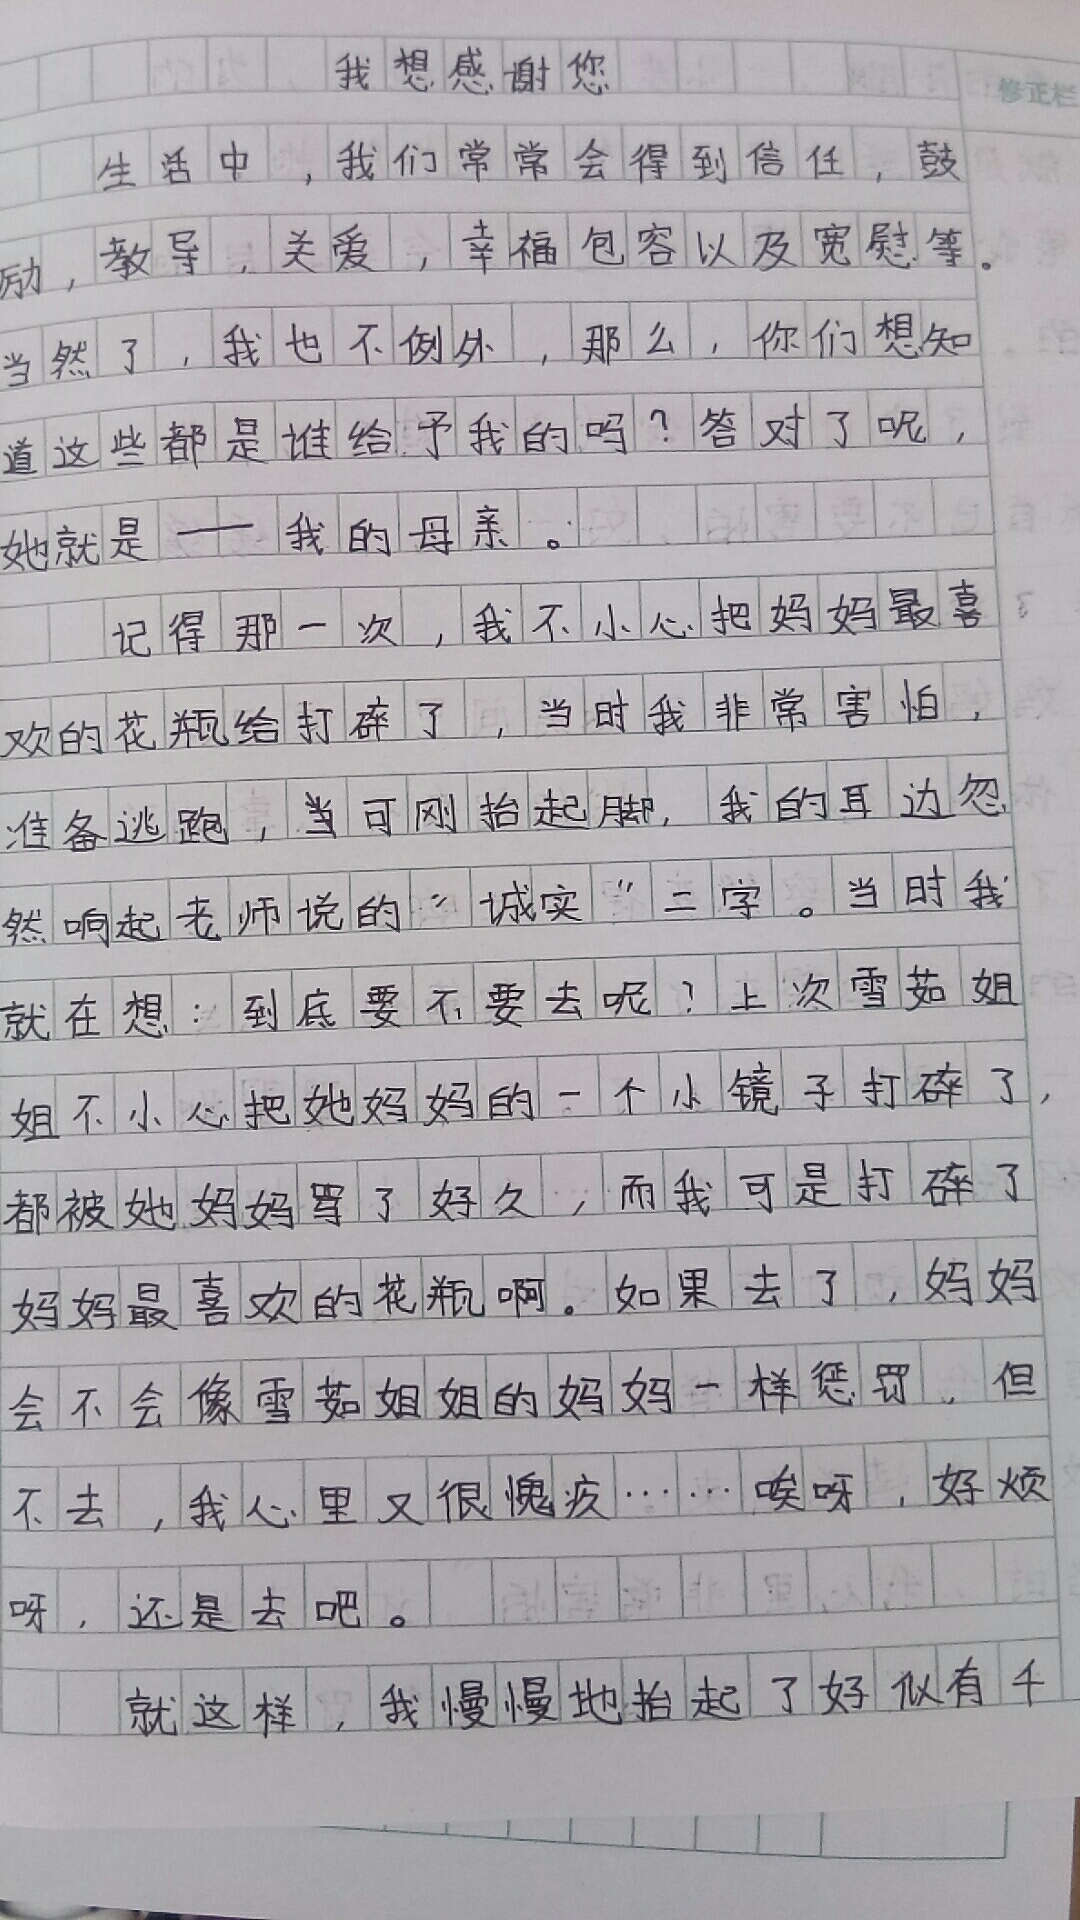 我想感谢您
修正栏
生活中，我们常常会得到信任，鼓
励，教导，关爱，幸福包容以及宽慰等。
当然了，我也不例外，那么，你们想知
道这些都是谁给予我的吗？答对了呢，
她就是——我的母亲。
记得那一次，我不小心把妈妈最喜
欢的花瓶给打碎了，当时我非常害怕，
准备逃跑，当可刚抬起脚，我的耳边忽
然响起老师说的“诚实”二字。当时我
就在想：到底要不要去呢？上次雪茹姐
姐不小心把她妈妈的一个小镜子打碎了，
都被她妈妈骂了好久，而我可是打碎了
妈妈最喜欢的花瓶啊。如果去了，妈妈
会不会像雪茹姐姐的妈妈一样惩罚，但
不去，我心里又很愧疚……唉呀，好烦
呀，还是去吧。
就这样，我慢慢地抬起了好似有千